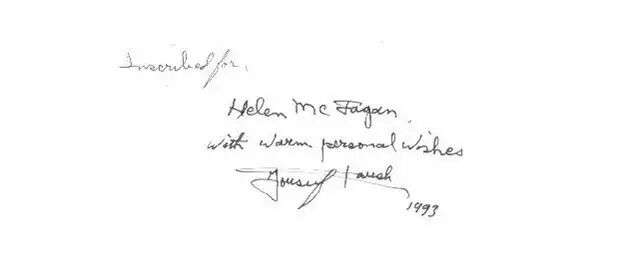 Inscribed for,
Helen Mc Fagan.
with warm personal wishes
Yousuf Karsh
1993